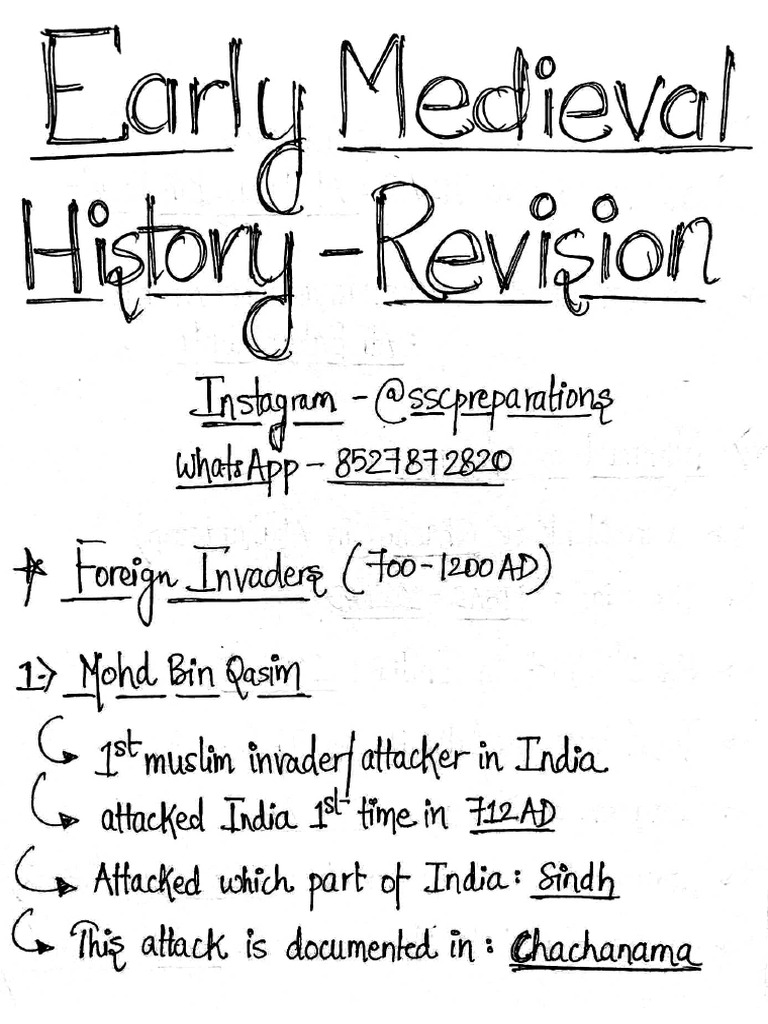 Early Medieval
History - Revision
Instagram - @sscpreparations
WhatsApp - 8527872820
* Foreign Invaders (700-1200 AD)
1:-) Mohd Bin Qasim
1st muslim invader/attacker in India
attacked India 1st time in 712 AD
Attacked which part of India: Sindh
This attack is documented in: Chachanama